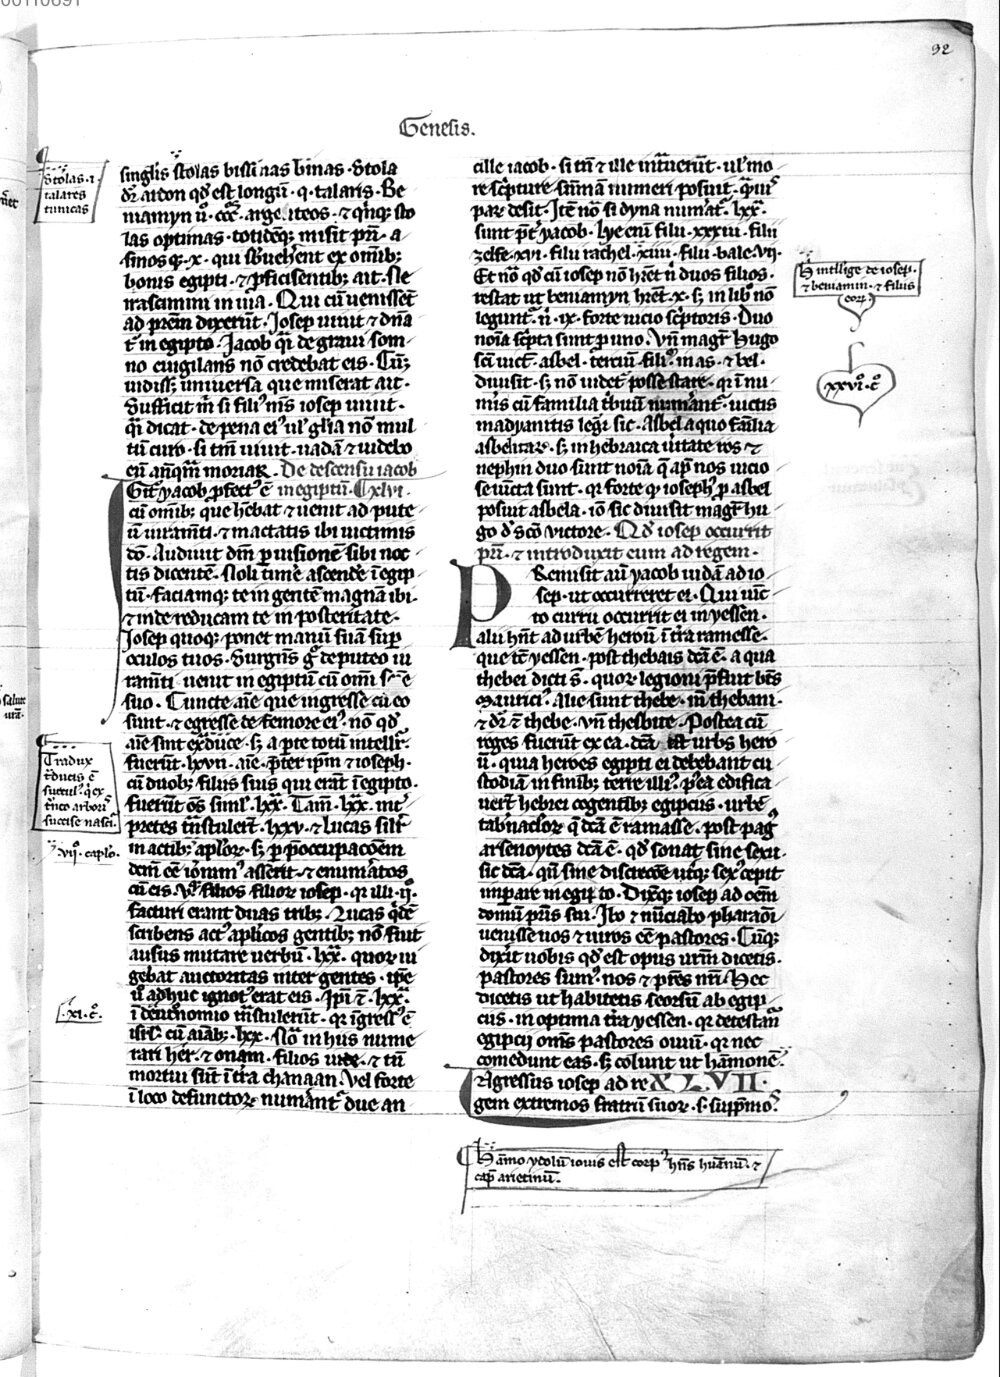 32
Genesis.
singlis stolas bissinas binas · stola
dr̄ aidon qd̄ est longū · q · talaris · Be
niamyn u̾ · ccc · argēnteos · ⁊ qinq; sto
las optimas · totideq; misit pr̄i · a
sinos q; · x · qui sbueherēt ex omib;
bonis egipti · ⁊ pficisentib; ait · Ne
irascimini in uia · Qui cū uenissēt
ad prēm dixerūt · Iosep uiuit ⁊ dn̄a
t̄ in egipto · Iacob qi de graui som
no euigilans nō credebat eis · Cūq;
uidiss; uniuersa que miserat ait ·
Sufficit m̄ si fili' m̄s iosep uiuit ·
q̄i dicat · de pena ei' ul' gl̄ia nō mul
tū curo · si tm̄ uiuit · uadā ⁊ uidebo
cū anq̄m moriar · De descensu iacob
Git yacob pfect' ē in egiptū · Cxlvi ·
cū omib; que hēbat ⁊ uenit ad pute
ū iurām̄ti · ⁊ mactatis ibi uictimis
dō · Audiuit dm̄ p uisionē sibi noc
tis dicentē · Noli timēe ascendē ī egip
tū · faciamq; te in gentē magnā ibi ·
⁊ inde reducam te in posteritate ·
Iosep quoq; ponet manū suā sup
occulos tuos · Surgn̄s g̊ de puteo iu
ram̄ti uenit in egiptū cū omī
suo · Cuncte aīe que ingresse cū eo
sunt · ⁊ egresse de femore ei' · nō qd̄
aīe sint exduce · s; a pte totū intelligr̄ ·
fuerūt · lxvii · aīe · pter ipm̄ ⁊ ioseph ·
cū duob; filiis suis qui erāt ī egipto ·
fuerūt oēs simł · lxx · Tam̄ · lxx · int'
pretes trāstulerūt · lxxv · ⁊ lucas silr̄
in actib; aplor̄ · s; p p̄occupacōem
dem̄ eē iōnim' asserit · ⁊ enumātos
cū eis · vq; filios filior̄ iosep · qr illi · ij ·
facturi erant duas trib; · Lucas qd̄ē
scribens act' aplicos gentib; nō fuit
ausus mutare uerbū · lxx · quor̄ ui
gebat auctoritas inter gentes · ip̄e
u̾ adhuc ignot' erat eis · Ipi ē · lxx ·
ī deut'onomio trāstulerūt · qr īgress' ē
isrl̄ cū aiab; · lxx · Nō in hiis nume
rari her · ⁊ onam · filios iude · ⁊ tū
mortui sūt ī t̄ra chanaan · Vel forte
ī loco defunctor̄ numant' due an
cille iacob · si tn̄ ⁊ ille intuerūt · ul' mo
re scpture sūmā numeri posuit · q̄uis
par̄ desit · Itē nō si dyna numāt' · lxx ·
sunt pt̄ yacob · lye enī filii · xxxiii · filii
zelfe · xvi · filii rachel · xiiii · filii · bale · vij ·
Et nō qd̄ cū iosep nō hr̄et n̄ duos filios ·
restat ut beniamyn hr̄et · x · s; in lib' nō
legunt' · n̄ · ix · forte uicio scptoris · Duo
noīa scpta sunt p uno · Vn̄ magr̄ hugo
sc̄i uict' · asbel · terciū · filiū mas · ⁊ bel ·
diuisit · s; nō uidet' posse stare · qr ī nu
mis cū familia tribuū numant' · iuctis
madyanitis legr̄ sic · Asbel a quo fam̄lia
asbelitar̄ · s; in hebraica uitate ros ⁊
nephin duo sunt noīa q̄ ap̄ nos uicio
se iuncta sunt · qr forte qr ioseph' p asbel
posuit asbela · iō sic diuisit magr̄ hu
go d' sc̄o victore · Qd̄ iosep occurrit
pr̄i · ⁊ introduxit eum ad regem ·
Premisit aū yacob iudā ad io
sep · ut occurreret ei · Qui iūc
to curru occurrit ei in yessen ·
alii hn̄t ad urbē heroū ī t̄ra ramesse ·
que t̄ē yessen · post thebais dc̄a ē · a qua
thebei dicti s̄ · quor̄ legioni p̄fuit bt̄s
mauricī · Alie sunt thebe · in thebani ·
⁊ dr̄ ē thebe · vn̄ thesbite · Postea cū
reges fuerūt ex ea · dc̄a est urbs hero
ū · quia heroes egipti ei debebant cu
stodiā in finib; terre illi' · p'ea edifica
uerūt hebrei cogentib; egipciis · urbē
tab'naclor̄ q̄ dc̄a ē ramasse · post pag'
arsenoytes dc̄a ē · qd̄ sonat sine sexu ·
sic dc̄a · qn̄ sine discrecōe utiq; sex' cepit
impare in egipto · Dixitq; iosep ad oēm
domū pr̄is sui · Ibo ⁊ nūciabo pharaōi
uenisse uos ⁊ uiros eē pastores · Cūq;
dixit uobis qd̄ est opus ur̄m dicetis ·
pastores sum' · nos ⁊ pr̄es nr̄i · Hec
dicetis ut habitetis seorsū ab egip
ciis · in optima t̄ra yessen · qr detestan'
egipcii om̄s pastores ouiū · qr nec
comedunt eas · s; colunt ut hāmonē ·
Agressus iosep ad re XLVII ·
gem extremos fratrū suor̄ · s · suppmo'
Stolas · i ·
talares
tunicas
Tradux
t̄ducis ē
surcul' q ex
t̄nco arbor'
succise nasci'
vij · caplo ·
xi · c̊ ·
H̄ intllige de iosep ·
⁊ beniamin · ⁊ filiis
eor̄
xxvi · c̊
Hāmo ydolū iouis est corp' hn̄s huānū · ⁊
cap' arietinū ·